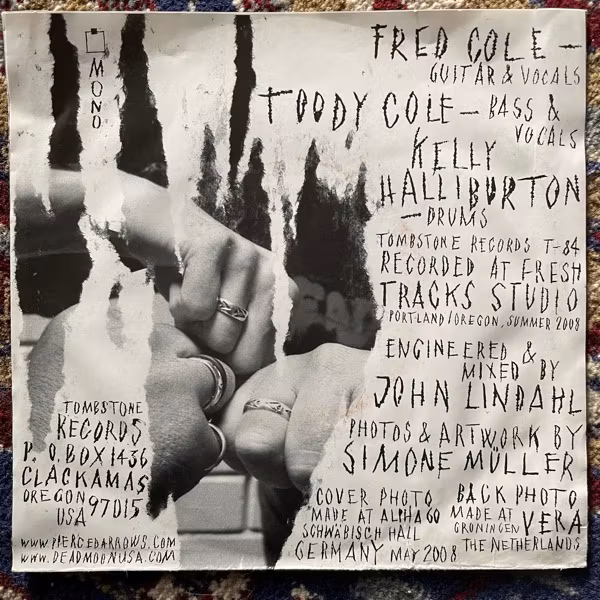 MONO
FRED COLE –
GUITAR & VOCALS
TOODY COLE – BASS &
VOCALS
KELLY
HALLIBURTON
– DRUMS
TOMBSTONE RECORDS T-84
RECORDED AT FRESH
TRACKS STUDIO
PORTLAND/OREGON, SUMMER 2008
ENGINEERED &
MIXED BY
JOHN LINDAHL
PHOTOS & ARTWORK BY
SIMONE MÜLLER
COVER PHOTO
MADE AT ALPHA 60
SCHWÄBISCH HALL
GERMANY MAY 2008
BACK PHOTO
MADE AT
GRONINGEN VERA
THE NETHERLANDS
TOMBSTONE
RECORDS
P. O. BOX 1436
CLACKAMAS
OREGON 97015
USA
WWW.PIERCEDARROWS.COM
WWW.DEADMOONUSA.COM